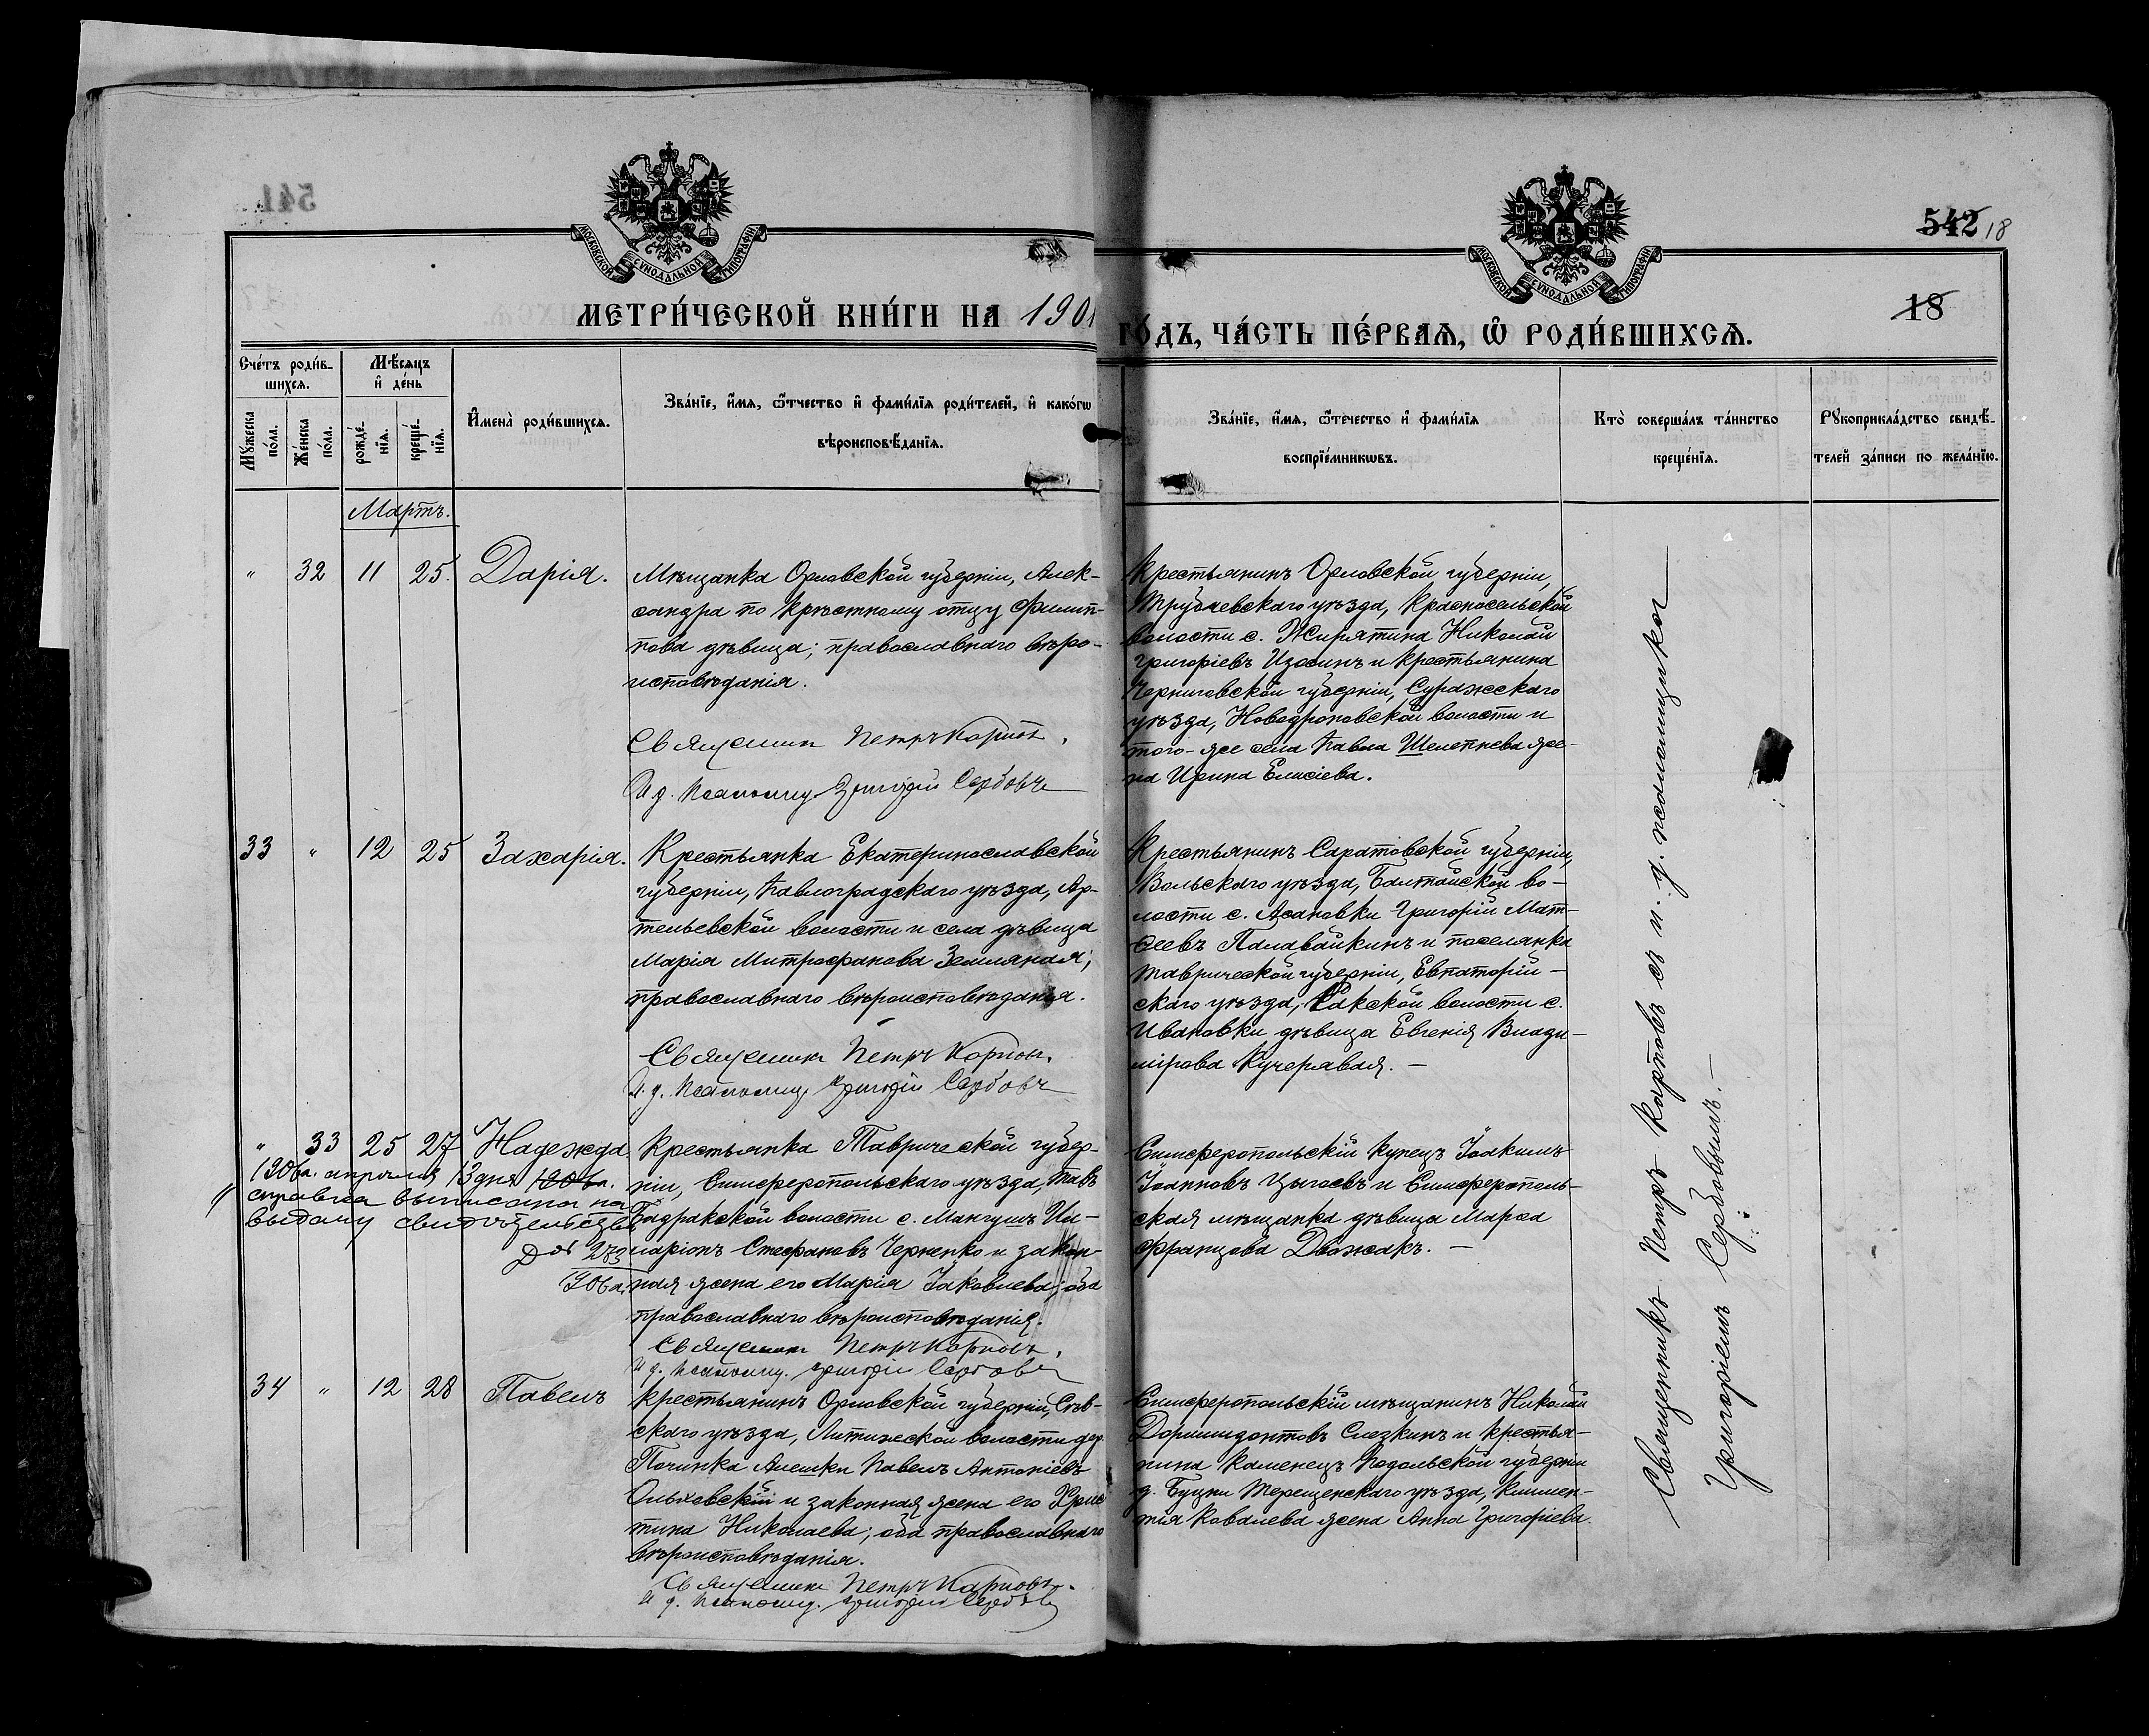 541
542 18
18
МОСКОВСКОЙ СѴНОДАЛЬНОЙ ТИПОГРАФІИ
МОСКОВСКОЙ СѴНОДАЛЬНОЙ ТИПОГРАФІИ
МЕТРИ́ЧЕСКОЙ КНИ́ГИ НА 1901
ГО́ДЪ, ЧА́СТЬ ПЕ́РВАѦ, Ѡ҆ РОДИ́ВШИХСѦ.
Сче́тъ роди́в-
шихсѧ.
Мѣ́сѧцъ
и҆ де́нь
Мꙋ́жеска
по́ла.
Же́нска
по́ла.
рожде́-
нїѧ.
креще́-
нїѧ.
И҆мена̀ роди́вшихсѧ.
Зва́нїе, и҆́мѧ, ѻ҆́тчество и҆ фами́лїѧ роди́телей, и҆ како́гѡ
вѣроисповѣ́данїѧ.
Зва́нїе, и҆́мѧ, ѻ҆́течество и҆ фами́лїѧ
воспрїе́мникѡвъ.
Кто̀ соверша́лъ та́инство
креще́нїѧ.
Рꙋкоприкла́дство свидѣ́-
телей за́писи по жела́нїю.
Мартъ.
" 32 11 25. Дарія.
Мѣщанка Орловской губерніи, Алек-
сандра по крѣстному отцу Филип-
пова дѣвица; православнаго вѣро-
исповѣданія.
Священникъ Петръ Карповъ.
И. д. псаломщ. Григорій Сербовъ
Крестьянинъ Орловской губерніи,
Трубчевскаго уѣзда, Красносельской
волости с. Жирятина Николай
Григоріевъ Изосинъ и крестьянина
Черниговской губерніи, Суражскаго
уѣзда, Новодроковской волости и
того-же села Павла Шелепнева же-
на Ирина Елисіева.
33 " 12 25 Захарія.
Крестьянка Екатеринославской
губерніи, Павлоградскаго уѣзда, Ар-
тельевской волости и села дѣвица
Марія Митрофанова Земляная;
православнаго вѣроисповѣданія.
Священникъ Петръ Карповъ.
И. д. псаломщ. Григорій Сербовъ
Крестьянинъ Саратовской губерніи,
Вольскаго уѣзда, Балтайской во-
лости с. Асановки Григорій Мат-
ѳеевъ Палавайкинъ и поселянка
Таврической губерніи, Евпаторій-
скаго уѣзда, Сакской волости с.
Ивановки дѣвица Евгенія Влади-
мірова Кучерявая. —
" 33 25 27 Надежда
1906 г. апрѣля 13 дня 1906 г.
справка выписана на
выдачу свидѣтельства
273
906 г.
Крестьянка Таврической губер-
ніи, Симферопольскаго уѣзда, Тавъ
Бадракской волости с. Мангушъ Ил-
ларіонъ Стефановъ Черненко и закон-
ная жена его Марія Іаковлева; оба
православнаго вѣроисповѣданія.
Священникъ Петръ Карповъ.
И. д. псаломщ. Григорій Сербовъ
Симферопольскій купецъ Іоакимъ
Іоанновъ Цыгаевъ и Симферополь-
ская мѣщанка дѣвица Марѳа
Францова Дважакъ. —
34 " 12 28 Павелъ
Крестьянинъ Орловской губерніи, Сѣв-
скаго уѣзда, Литижской волости дер.
Починка Алешки Павелъ Антоніевъ
Ольховскій и законная жена его Хрис
тина Николаева; оба православнаго
вѣроисповѣданія.
Священникъ Петръ Карповъ.
И. д. псаломщ. Григорій Сербовъ
Симферопольскій мѣщанинъ Николай
Доримидонтовъ Слезкинъ и крестья-
нина Каменецъ Подольской губерніи
д. Буцни Терещенскаго уѣзда, Климен-
тія Ковалева жена Анна Григоріева.
Священникъ Петръ Карповъ съ и. д. псаломщика
Григоріемъ Сербовымъ. —